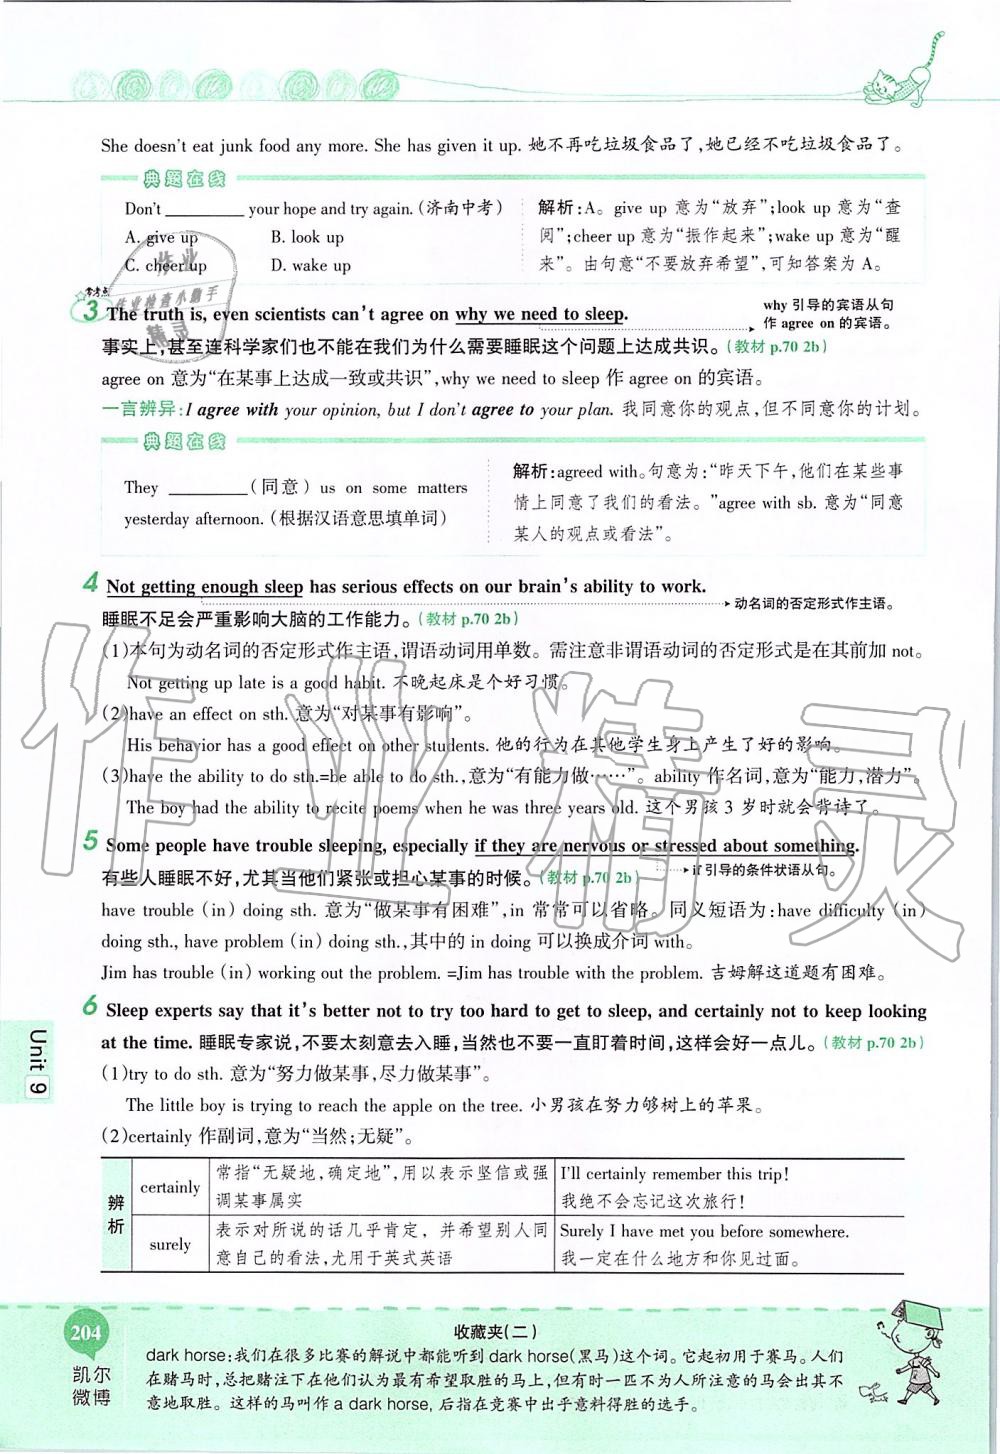 She doesn't eat junk food any more. She has given it up. 她不再吃垃圾食品了,她已经不吃垃圾食品了。
典题在线
Don't __________ your hope and try again.(济南中考)
A. give up B. look up
C. cheer up D. wake up
解析:A。give up 意为“放弃”;look up 意为“查
阅”;cheer up 意为“振作起来”;wake up 意为“醒
来”。由句意“不要放弃希望”,可知答案为 A。
常考点
3 The truth is, even scientists can't agree on why we need to sleep.
why 引导的宾语从句
作 agree on 的宾语。
事实上,甚至连科学家们也不能在我们为什么需要睡眠这个问题上达成共识。(教材 p.70 2b)
agree on 意为“在某事上达成一致或共识”,why we need to sleep 作 agree on 的宾语。
一言辨异:I agree with your opinion, but I don't agree to your plan. 我同意你的观点,但不同意你的计划。
典题在线
They __________(同意) us on some matters
yesterday afternoon.(根据汉语意思填单词)
解析:agreed with。句意为:“昨天下午,他们在某些事
情上同意了我们的看法。”agree with sb. 意为“同意
某人的观点或看法”。
4 Not getting enough sleep has serious effects on our brain's ability to work.
动名词的否定形式作主语。
睡眠不足会严重影响大脑的工作能力。(教材 p.70 2b)
(1)本句为动名词的否定形式作主语,谓语动词用单数。需注意非谓语动词的否定形式是在其前加 not。
Not getting up late is a good habit. 不晚起床是个好习惯。
(2)have an effect on sth. 意为“对某事有影响”。
His behavior has a good effect on other students. 他的行为在其他学生身上产生了好的影响。
(3)have the ability to do sth.=be able to do sth.,意为“有能力做……”。ability 作名词,意为“能力,潜力”。
The boy had the ability to recite poems when he was three years old. 这个男孩 3 岁时就会背诗了。
5 Some people have trouble sleeping, especially if they are nervous or stressed about something.
有些人睡眠不好,尤其当他们紧张或担心某事的时候。(教材 p.70 2b)
if 引导的条件状语从句。
have trouble (in) doing sth. 意为“做某事有困难”,in 常常可以省略。同义短语为:have difficulty (in)
doing sth., have problem (in) doing sth.,其中的 in doing 可以换成介词 with。
Jim has trouble (in) working out the problem. =Jim has trouble with the problem. 吉姆解这道题有困难。
6 Sleep experts say that it's better not to try too hard to get to sleep, and certainly not to keep looking
at the time. 睡眠专家说,不要太刻意去入睡,当然也不要一直盯着时间,这样会好一点儿。(教材 p.70 2b)
(1)try to do sth. 意为“努力做某事,尽力做某事”。
The little boy is trying to reach the apple on the tree. 小男孩在努力够树上的苹果。
(2)certainly 作副词,意为“当然;无疑”。
辨析
certainly
常指“无疑地,确定地”,用以表示坚信或强
调某事属实
I'll certainly remember this trip!
我绝不会忘记这次旅行!
surely
表示对所说的话几乎肯定,并希望别人同
意自己的看法,尤用于英式英语
Surely I have met you before somewhere.
我一定在什么地方和你见过面。
Unit 9
204
凯尔
微博
收藏夹(二)
dark horse:我们在很多比赛的解说中都能听到 dark horse(黑马)这个词。它起初用于赛马。人们
在赌马时,总把赌注下在他们认为最有希望取胜的马上,但有时一匹不为人所注意的马会出其不
意地取胜。这样的马叫作 a dark horse, 后指在竞赛中出乎意料得胜的选手。
作业
作业检查小助手
精灵
作业精灵